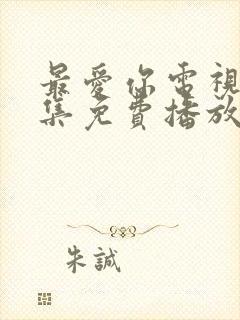 最愛你電視
集免費播放
朱誠